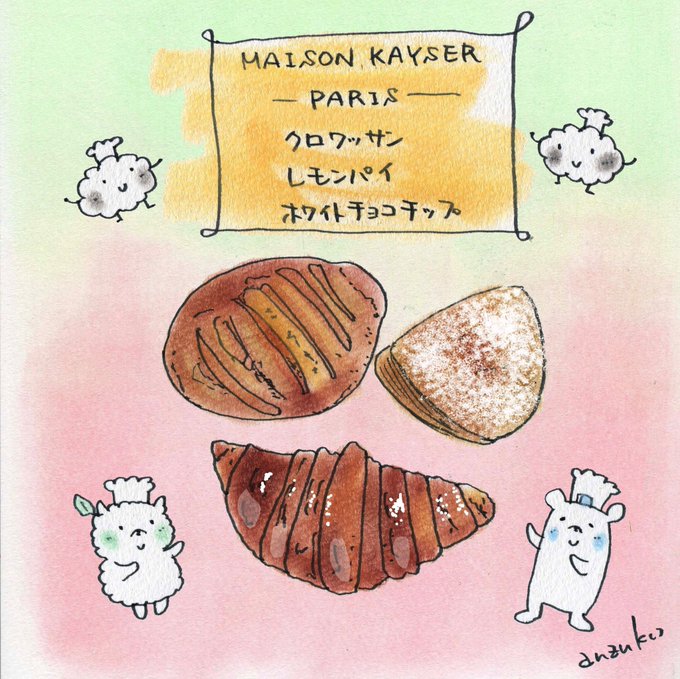 MAISON KAYSER
— PARIS —
クロワッサン
レモンパイ
ホワイトチョコチップ
anzuko